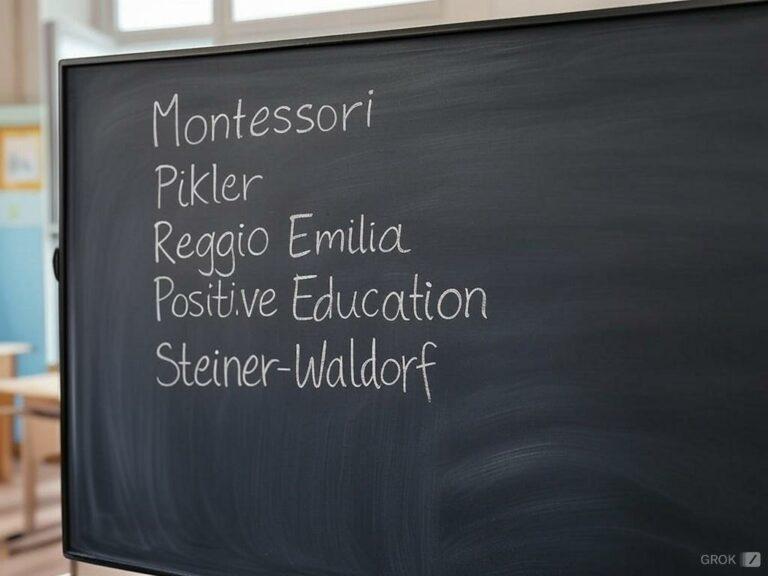 Montessori
Pikler
Reggio Emilia
Positive Education
Steiner-Waldorf
GROK